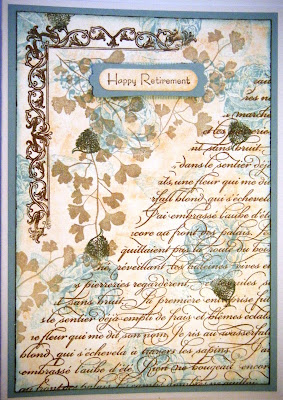 Happy Retirement
et les pierreries
nt sans bruit.
dans le sentier déjà
els, une fleur qui me dit
rfall blond, qui s'échevela
J'ai embrassé l'aube d'été
core au front des palais.
quittaient pas la route du bois
ne, réveillant les haleines vives et
s pierreries regardèrent,
sans bruit. La première entreprise fut
le sentier déjà empli de frais et blêmes éclats
ne fleur qui me dit son nom. Je ris au wasserfall
blond qui s'échevela à travers les sapins. J'ai
embrassé l'aube d'été. Rien ne bougeait encore